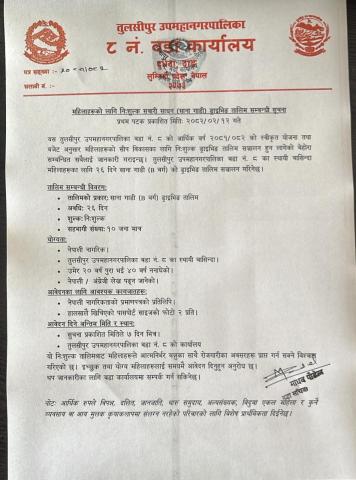 तुलसीपुर उपमहानगरपालिका
८ नं. वडा कार्यालय
लुम्बिनी प्रदेश, नेपाल
पत्र सङ्ख्या :-
चलानी नं. :-
महिलाहरूको लागि निःशुल्क सवारी साधन (साना गाडी) ड्राइभिङ तालिम सम्बन्धी सूचना
प्रथम पटक प्रकाशित मिति: २०८२/०२/१२ गते
यस तुलसीपुर उपमहानगरपालिका वडा नं. ८ को आर्थिक वर्ष २०८१/०८२ को स्वीकृत योजना तथा
बजेट अनुसार महिलाहरूको सीप विकासका लागि निःशुल्क ड्राइभिङ तालिम सञ्चालन हुन लागेको बेहोरा
सम्बन्धित सबैलाई जानकारी गराइन्छ। तुलसीपुर उपमहानगरपालिका वडा नं. ८ का स्थायी बासिन्दा
महिलाहरूका लागि २६ दिने साना गाडी (B वर्ग) को ड्राइभिङ तालिम सञ्चालन गरिनेछ।
तालिम सम्बन्धी विवरण:
• तालिमको प्रकार: साना गाडी (B वर्ग) ड्राइभिङ तालिम
• अवधि: २६ दिन
• शुल्क: निःशुल्क
• सहभागी संख्या: १० जना मात्र
योग्यता:
• नेपाली नागरिक।
• तुलसीपुर उपमहानगरपालिका वडा नं. ८ का स्थायी बासिन्दा।
• उमेर २० वर्ष पुरा भई ४० वर्ष ननाघेको।
• नेपाली / अंग्रेजी लेख पढ्न जानेको।
आवेदनका लागि आवश्यक कागजातहरू:
• नेपाली नागरिकताको प्रमाणपत्रको प्रतिलिपि।
• हालसालै खिचिएको पासपोर्ट साइजको फोटो २ प्रति।
आवेदन दिने अन्तिम मिति र स्थान:
• सूचना प्रकाशित मितिले ७ दिन भित्र।
• तुलसीपुर उपमहानगरपालिका वडा नं. ८ को कार्यालय
यो निःशुल्क तालिमबाट महिलाहरूले आत्मनिर्भर बन्नुका साथै रोजगारीका अवसरहरू प्राप्त गर्न सक्ने विश्वास
गरिएको छ। इच्छुक तथा योग्य महिलाहरूले समयमै आवेदन दिनुहुन अनुरोध छ।
थप जानकारीका लागि वडा कार्यालयमा सम्पर्क गर्न सकिनेछ।
वडा सचिव
नोट: आर्थिक रुपले बिपन्न, दलित, जनजाति, थारु समुदाय, अल्पसंख्यक, विदुवा एकल महिला र कुनै
व्यवसाय वा आय मुलक कृयाकलापमा संलग्न नरहेको परिवारको लागि विशेष प्राथमिकता दिईनेछ।